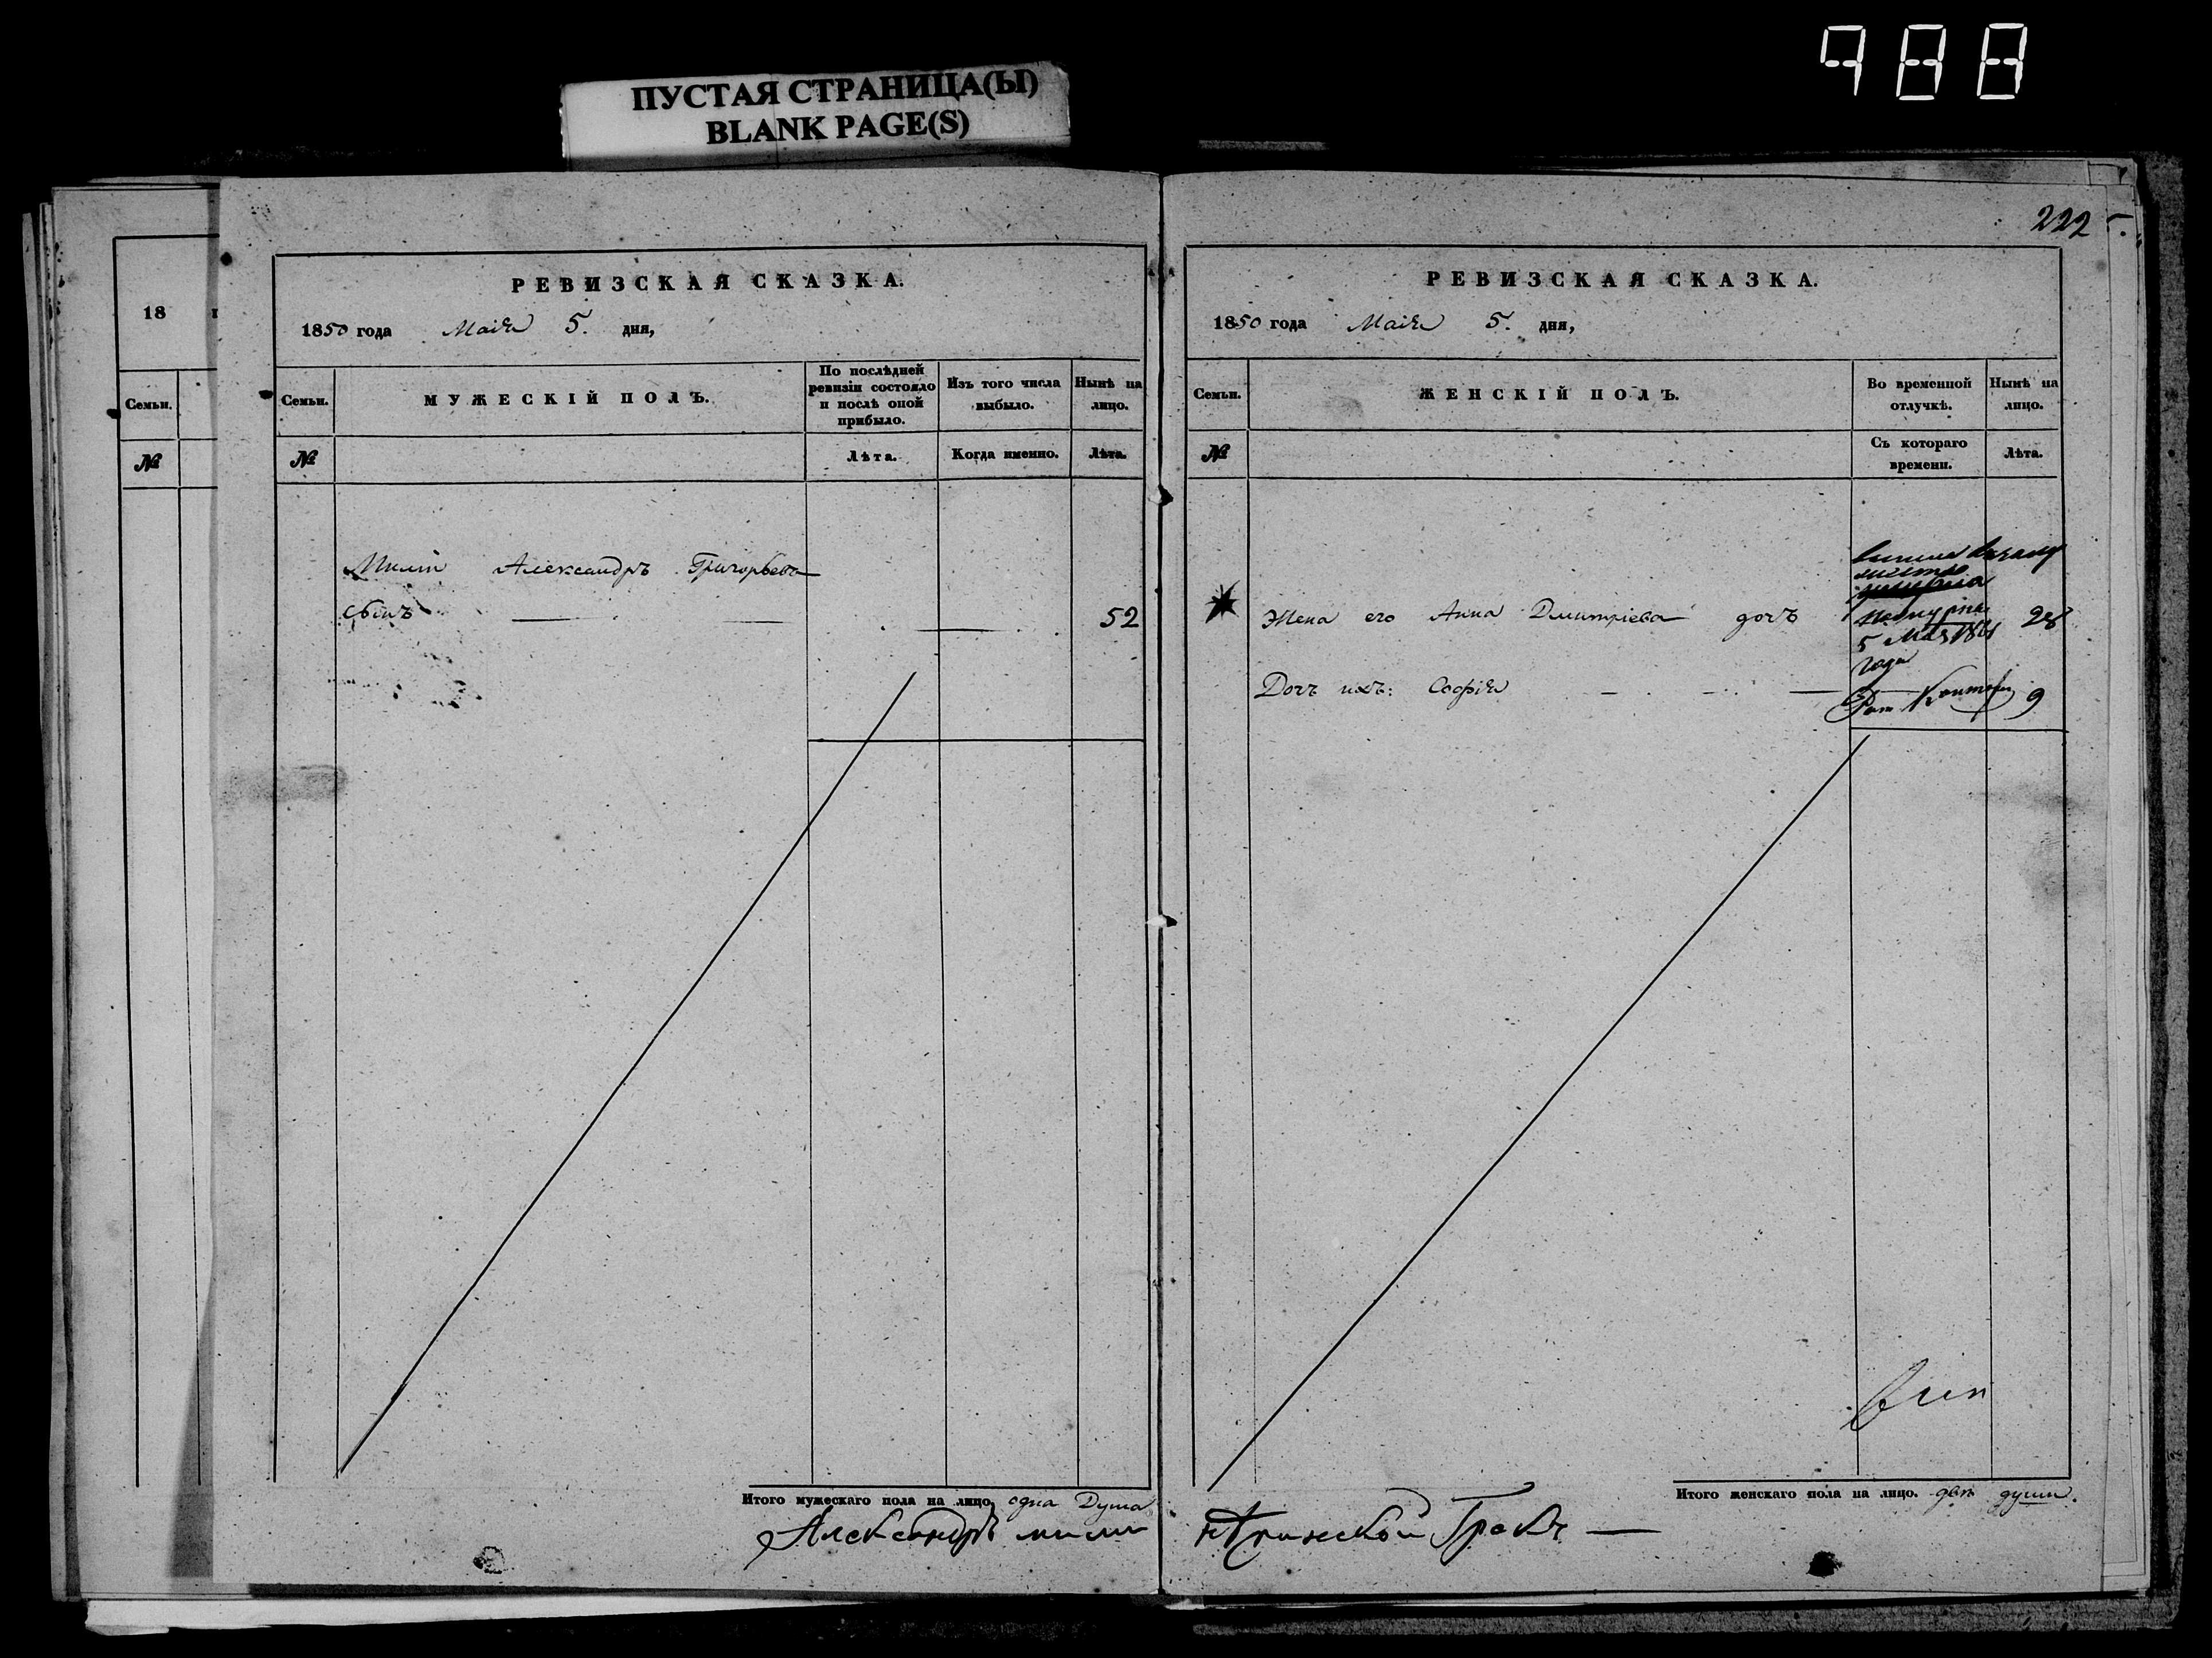 988
ПУСТАЯ СТРАНИЦА(Ы)
BLANK PAGE(S)
222
18
Семьи.
№
РЕВИЗСКАЯ СКАЗКА.
1850 года Маія 5. дня,
Семьи.
МУЖЕСКІЙ ПОЛЪ.
По послѣдней ревизіи состояло и послѣ оной прибыло.
Изъ того числа выбыло.
Нынѣ на лицо.
№
Лѣта.
Когда именно.
Лѣта.
Милій Александръ Григорьевъ
сынъ 52
Итого мужескаго пола на лицо, одна Душа
Александръ
РЕВИЗСКАЯ СКАЗКА.
1850 года Маія 5. дня,
Семьи.
ЖЕНСКІЙ ПОЛЪ.
Во временной отлучкѣ.
Нынѣ на лицо.
№
Съ котораго времени.
Лѣта.
Жена его Анна Дмитріева дочь 28
5 Мая
года
Дочь ихъ: Софія 9
Итого женскаго пола на лицо. двѣ души.